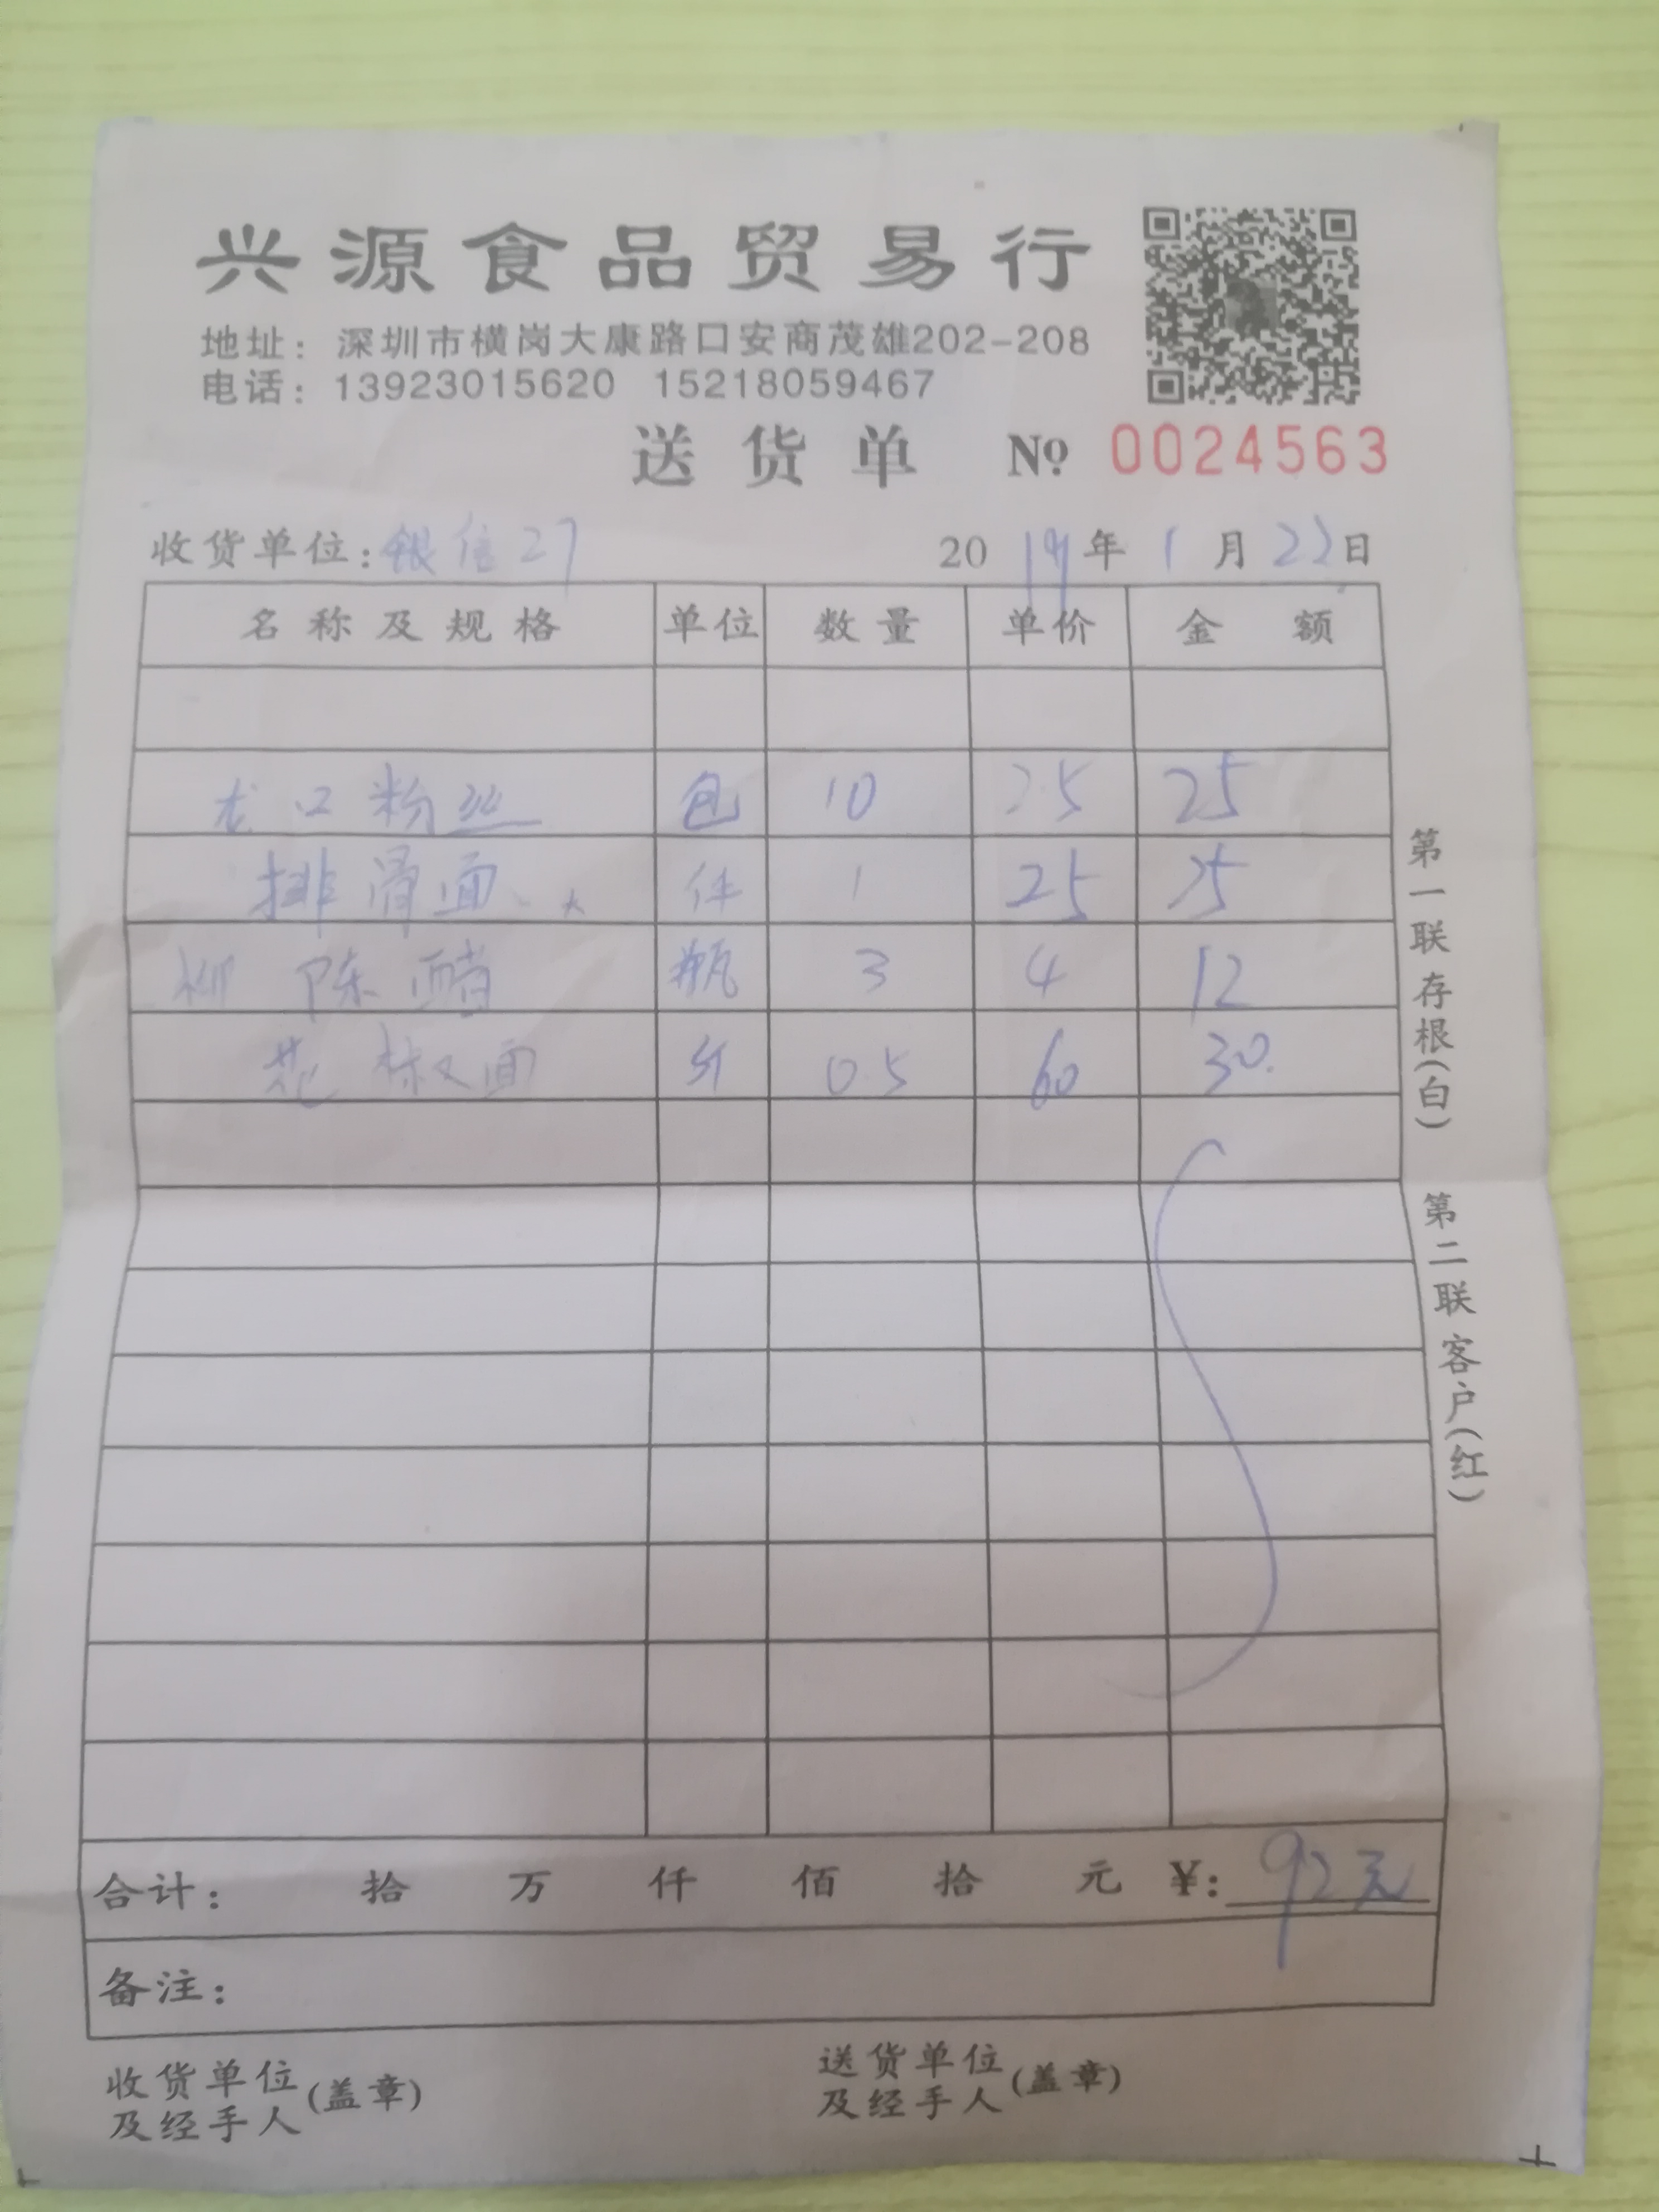 兴源食品贸易行
地址：深圳市横岗大康路口安商茂雄202-208
电话：13923015620 15218059467
送货单 № 0024563
收货单位：银信27 2019年1月22日
名称及规格 单位 数量 单价 金额
龙口粉丝 包 10 2.5 25
排骨面 大 件 1 25 25
陈醋 瓶 3 4 12
花椒面 斤 0.5 60 30.
合计： 拾 万 仟 佰 拾 元 ¥：92元
备注：
收货单位及经手人(盖章) 送货单位及经手人(盖章)
第一联存根(白)
第二联客户(红)